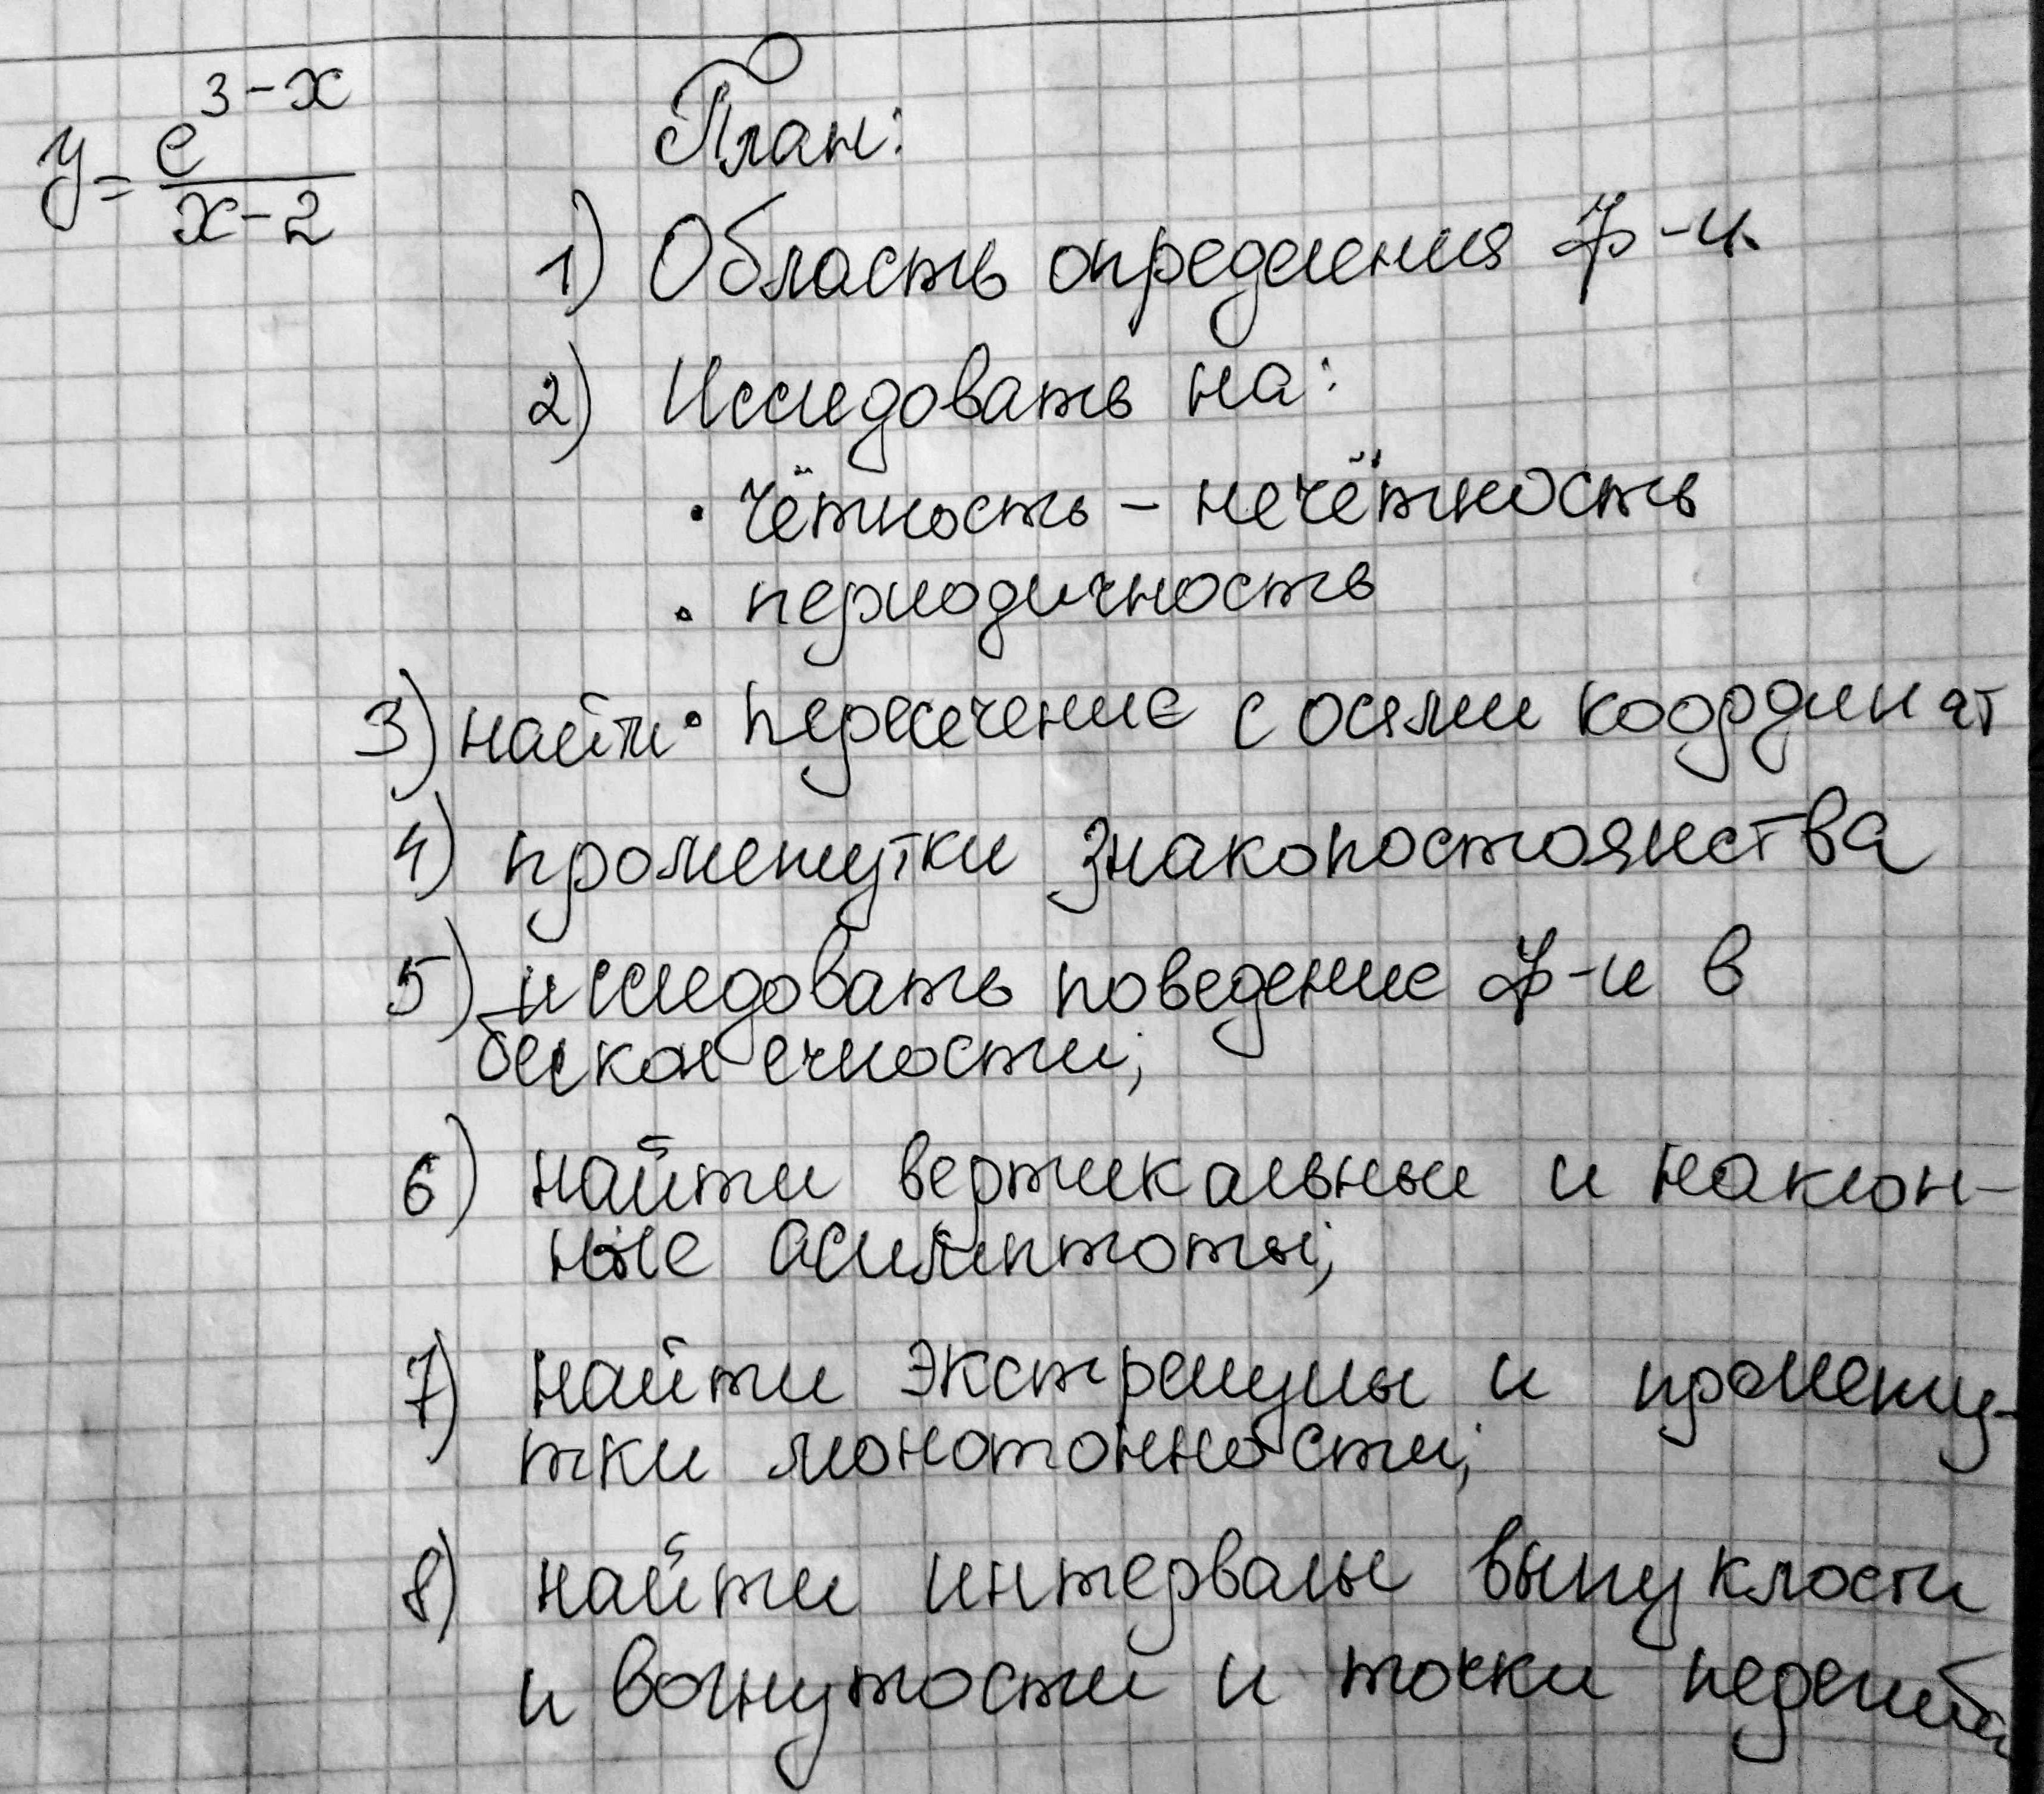 y = e^{3-x} / (x-2)
План:
1) Область определения ф-и.
2) Исследовать на:
• чётность – нечётность
• периодичность
3) найти • пересечение с осями координат
4) промежутки знакопостоянства
5) исследовать поведение ф-и в
бесконечности;
6) найти вертикальные и наклон-
ные асимптоты;
7) найти экстремумы и промежу-
тки монотонности;
8) найти интервалы выпуклости
и вогнутости и точки перегиба